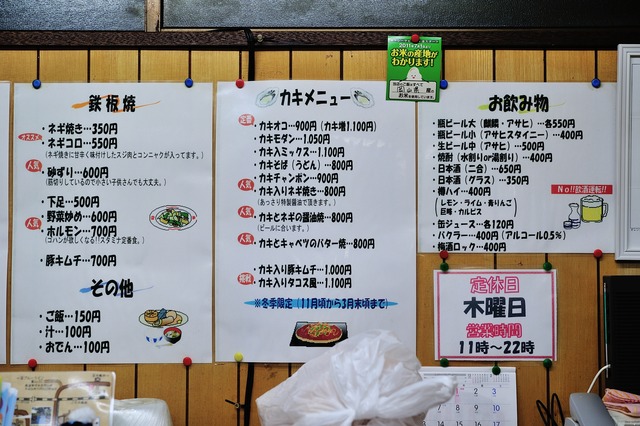 鉄板焼
・ネギ焼き…350円
オススメ
・ネギコロ…550円
(ネギ焼きに甘辛く味付けしたスジ肉とコンニャクが入ってます。)
人気
・砂ずり…600円
(筋切りしているので小さい子供さんでも大丈夫。)
・下足…500円
・野菜炒め…600円
人気
・ホルモン…700円
(ゴハンが欲しくなる!!スタミナ定番食。)
・豚キムチ…700円
その他
・ご飯…150円
・汁…100円
・おでん…100円
カキメニュー
定番
・カキオコ…900円(カキ増1,100円)
・カキモダン…1,050円
・カキ入ミックス…1,100円
・カキそば(うどん)…800円
・カキチャンポン…900円
人気
・カキ入りネギ焼き…800円
(あっさり特製醤油で頂きます。)
人気
・カキとネギの醤油焼…800円
(ビールに合います。)
人気
・カキとキャベツのバター焼…800円
・カキ入り豚キムチ…1,000円
挑戦
・カキ入りタコス風…1,100円
※冬季限定(11月頃から3月末頃まで)
2011年7月1から
お米の産地が
わかります!
岡山県
お飲み物
・瓶ビール大(麒麟・アサヒ)…各550円
・瓶ビール小(アサヒスタイニー)…400円
・生ビール中(アサヒ)…500円
・焼酎(水割りor湯割り)…400円
・日本酒(二合)…650円
・日本酒(グラス)…350円
・樽ハイ…400円
(レモン・ライム・青りんご
巨峰・カルピス)
No!!飲酒運転!!
・缶ジュース…各120円
・バクラー…400円(アルコール0.5%)
・梅酒ロック…400円
定休日
木曜日
営業時間
11時〜22時
1 2 3
7 8 9 10
14 15 16 17